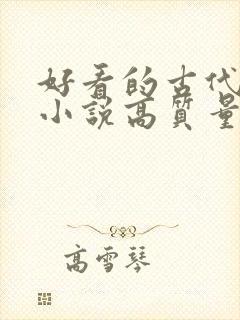 好看的古代
小說高質量
高雪琴